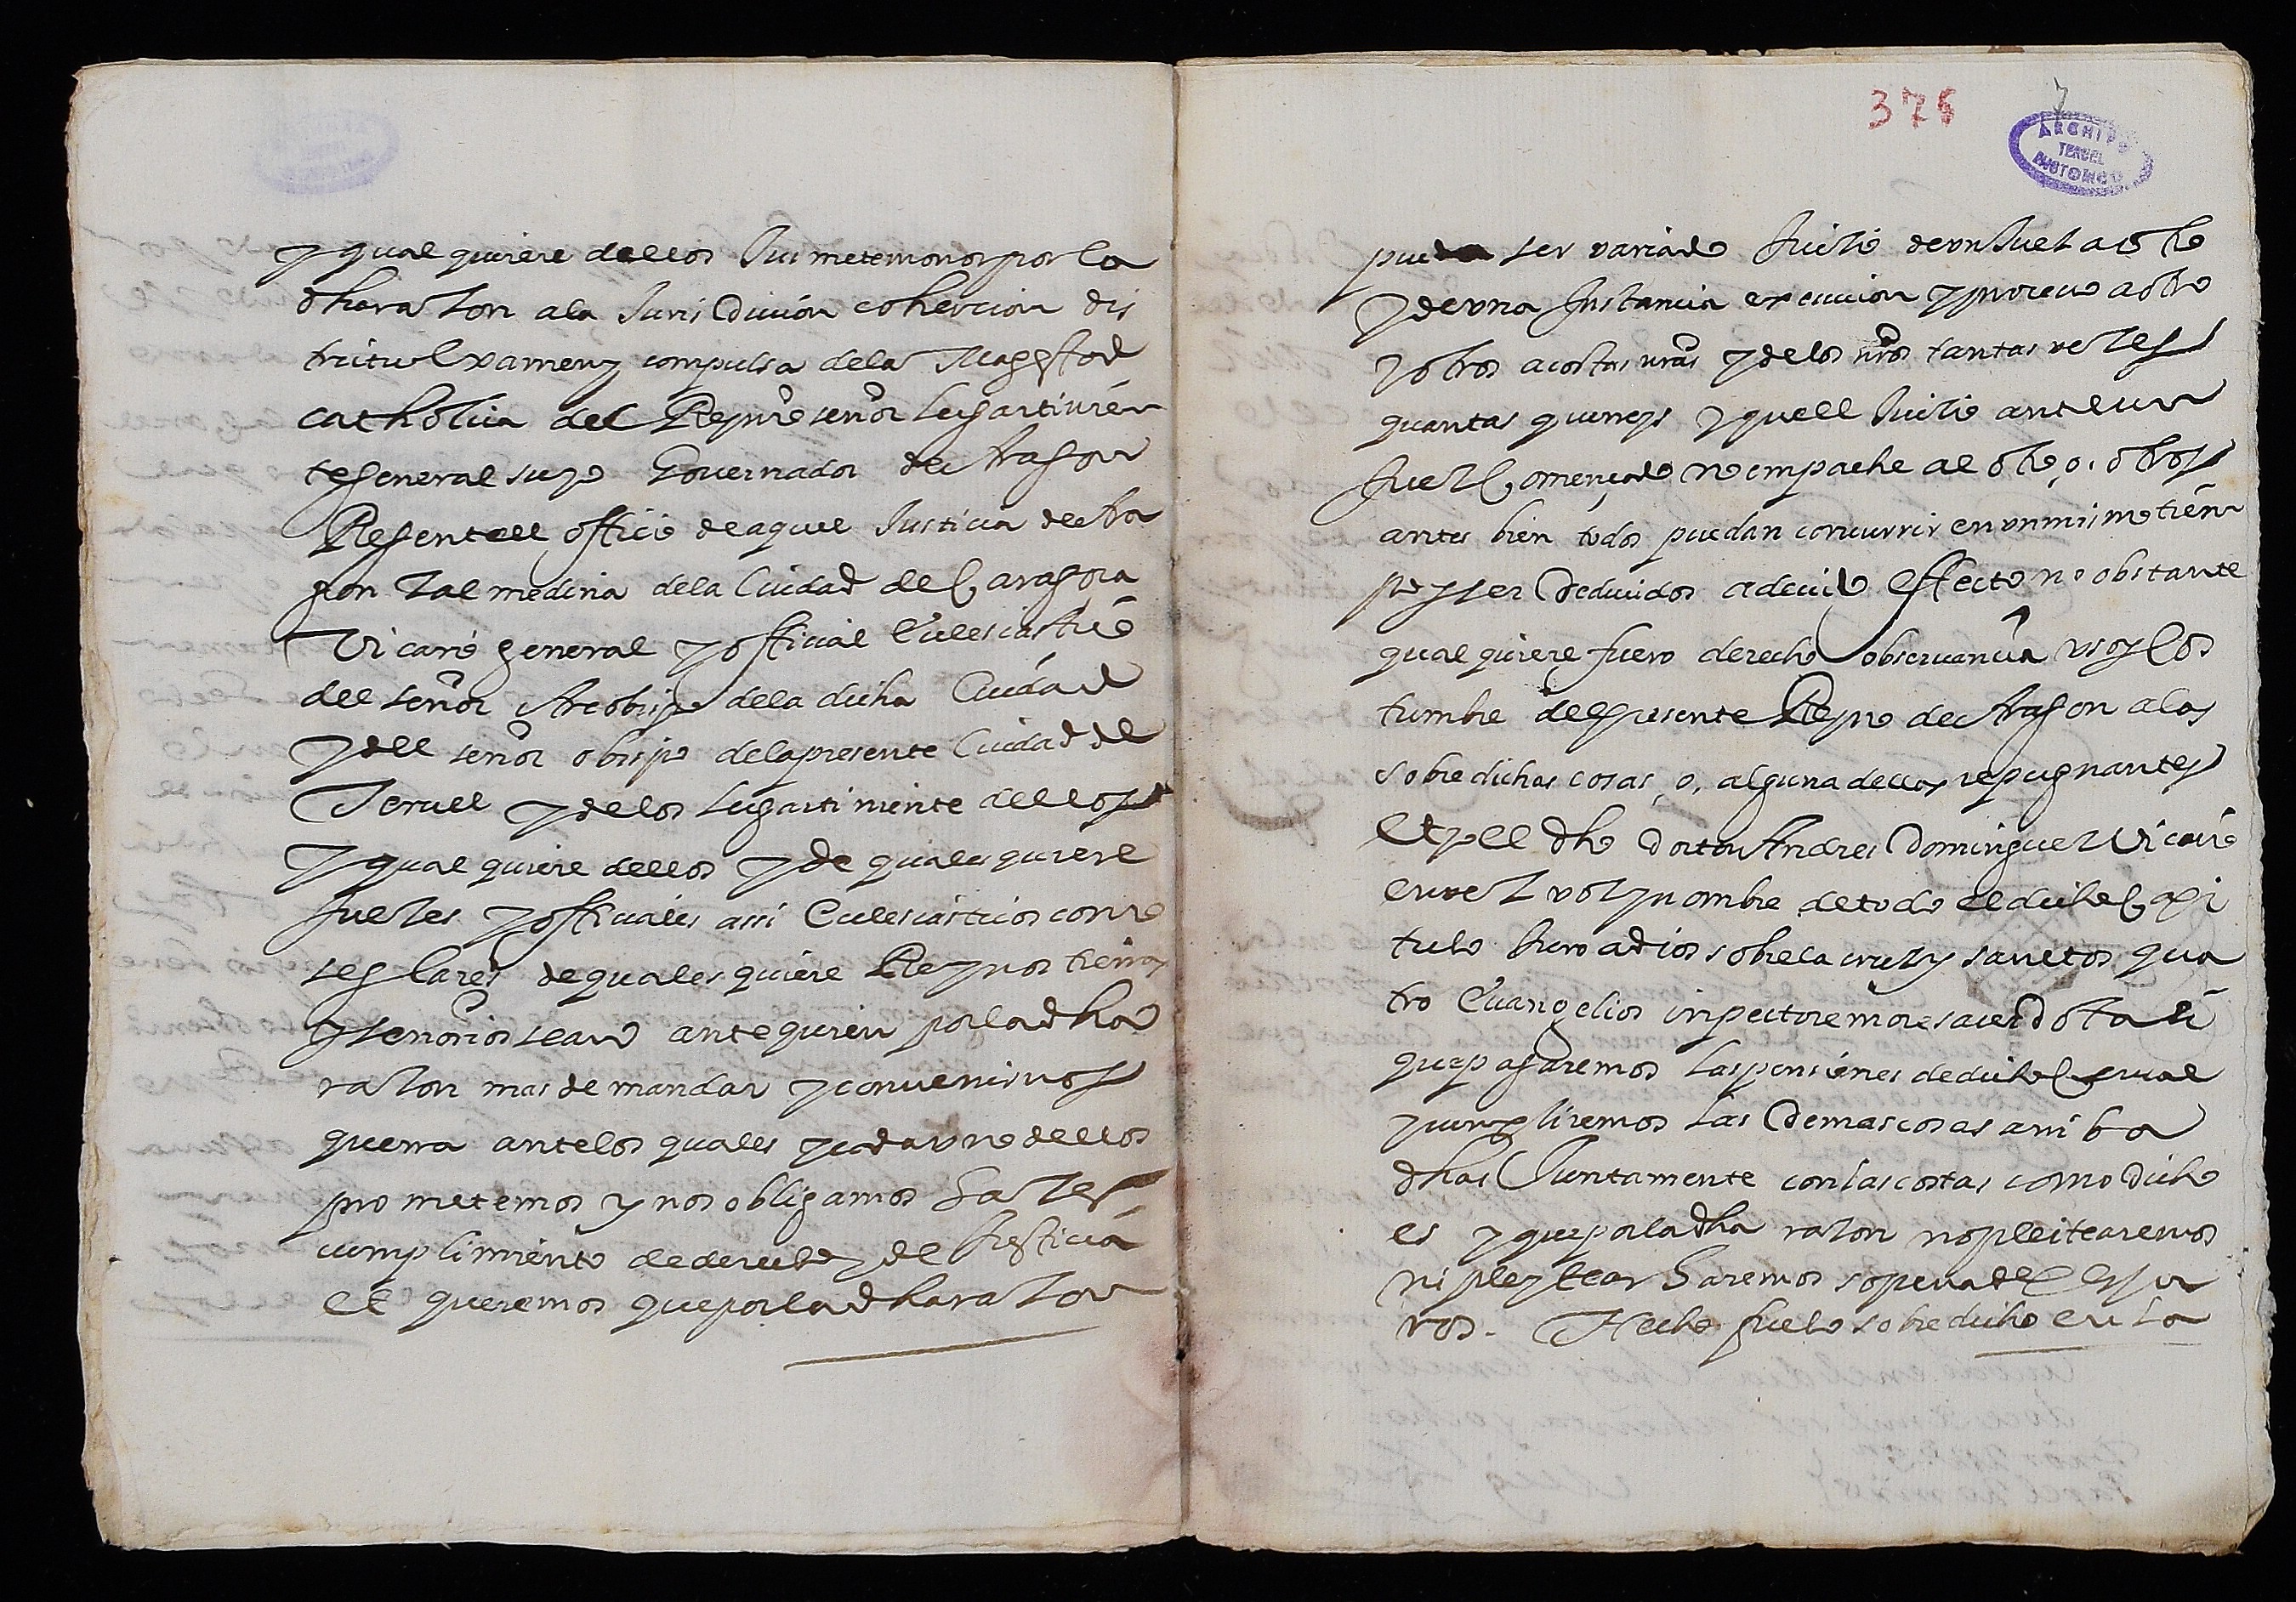 y qualquiere dellos Susmetemonos por la
dha razon a la Jurisdiccion cohercion dis
trictu examen y compulsa de la Magestad
catholica del Rey nro señor lugartinien
te general suyo Gouernador de Aragon
Regente el officio de aquel Justicia de Ara
gon Zalmedina de la Ciudad de Caragoca
Vicario general y official Eclesiastico
del señor Arcobispo de la dicha Ciudad
y del señor obispo de la presente Ciudad de
Teruel y de los lugartiniente dellos
y qualquiere dellos y de qualesquiere
Juezes y officiales assi Eclesiasticos como
seglares de qualesquiere Reynos tierras
y señorios sean ante quien por la dha
razon mas demandar y conuenirnos
querra ante los quales y cada vno dellos
prometemos y nos obligamos hazer
cumplimiento de derecho y de Justicia
et queremos que por la dha razon
376 7
ARCHIVO
TERUEL
HISTORICO
pueda ser variado Juicio de vn Juez a otro
y de vna Instancia execucion y proceso a otro
y otros a costas nras y de los nros tantas vezes
quantas querreys y quel Juicio ante vn
Juez començado no empache al otro o, otros
antes bien todos puedan concurrir en vn mismo tiem
po y ser deduzidos a deuido effecto no obstante
qualquiere fuero derecho obseruancia vso y cos
tumbre del presente Reyno de Aragon a las
sobredichas cosas, o, alguna dellas repugnantes
Et yo el dho doctor Andres Dominguez Vicario
en vez voz y nombre de todo el dicho Capi
tulo Juro a dios sobre la cruz y sanctos qua
tro Euangelios in pectore more sacerdotali
que pagaremos las pensiones de dicho Censual
y cumpliremos las demas cosas arriba
dhas Juntamente con las costas como dicho
es y que por la dha razon no pleitearemos
ni pleytear haremos so pena de perju
ros. Hecho fue lo sobredicho en la